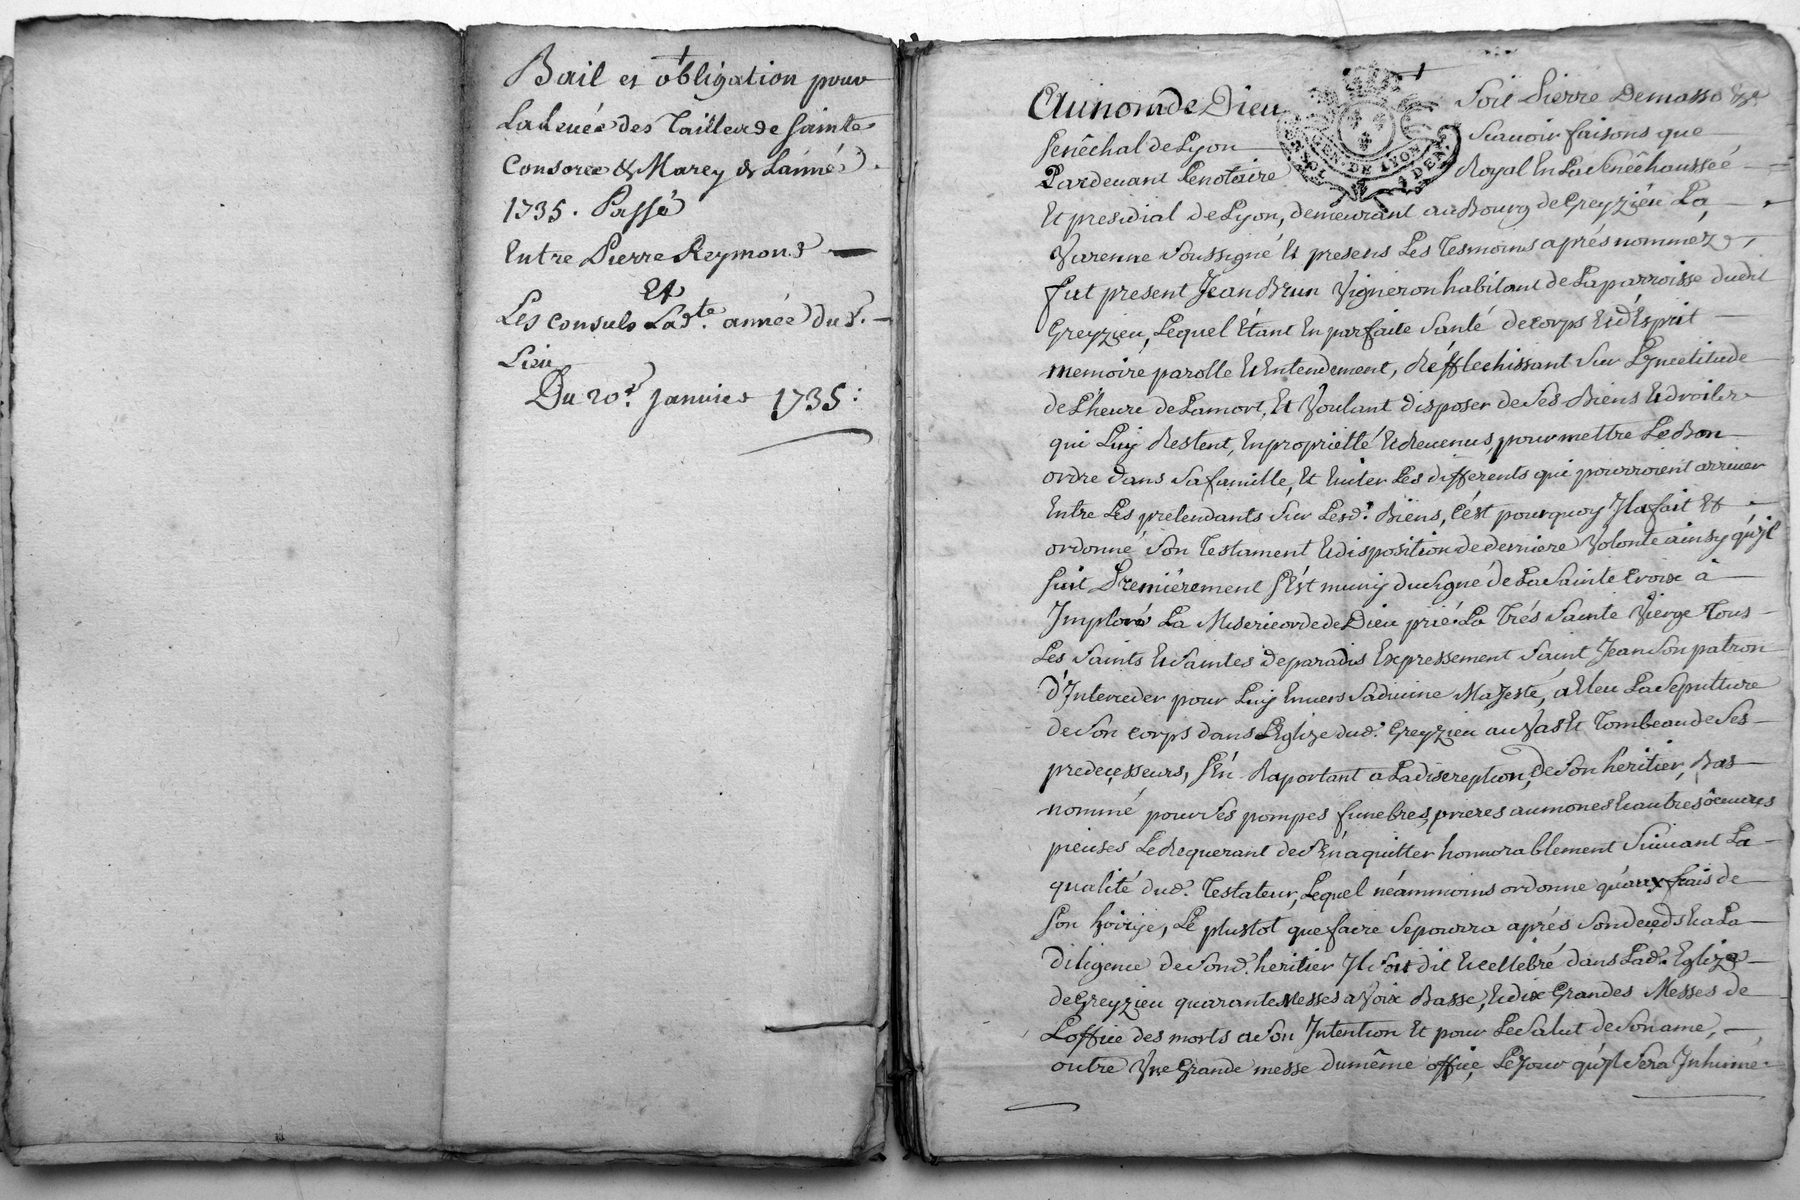 Bail et obligation pour
La Levée des Tailles de Sainte
Consorce & Marcy & L'année
1735. Passé
Entre Pierre Reymond
Et
Les consuls Lad.te année du d.
Lieu
Du 20.e Janvier 1735:
Au nom de Dieu Soit Pierre Demasso
Senêchal de Lyon Scavoir faisons que
Pardevant Le notaire Royal En La Senêchausseé
GEN. DE LYON
Et presidial de Lyon, demeurant au Bourg de Greyzieu La
Varenne Soussigné Et presens Les Tesmoins aprés nommez,
fut present Jean Brun Vigneron habitant de La parroisse dudit
Greyzieu, Lequel Etant En parfaite Santé de corps Et d'Esprit
memoire parolle Et Entendement, Réfflechissant Sur L'Incertitude
de L'heure de La mort, Et Voulant disposer de Ses Biens Et droits
qui Luy Restent, En proprietté Et Revenus, pour mettre Le Bon
ordre dans Sa famille, Et Eviter Les differents qui pourroient arriver
Entre Les pretendants Sur Lesd. Biens, C'ést pourquoy Il a fait Et
ordonné Son Testament Et disposition de derniere Volonté ainsy qu'il
Suit Premiérement S'ést muny du Signe de La Sainte Croix à
Imploré La Misericorde de Dieu prié La Trés Sainte Vierge Tous
Les Saints Et Saintes de paradis Expressement Saint Jean Son patron
d'Interceder pour Luy Envers Sa divine Majesté, a Eleu La Sepulture
de Son corps dans L'Eglize dud. Greyzieu au Vas Et Tombeau de Ses
predeçesseurs, S'én Raportant a La discreption, de Son heritier, Bas
nommé pour Ses pompes funebres, prieres aumones Et autres oeuvres
pieuses Le Requerant de S'én aquitter honnorablement Suivant La
qualité dud. Testateur, Lequel néammoins ordonne qu'aux frais de
Son hoirye, Le plustot que faire Se pourra aprés Son deceds Et a La
Diligence de Sond. heritier Il Soit dit Et cellebré dans Lad. Eglize
de Greyzieu quarante Messes a Voix Basse, Et dix Grandes Messes de
L'office des morts a Son Intention Et pour Le Salut de Son ame,
outre Une Grande messe du même office, Le Jour qu'il Sera Inhumé